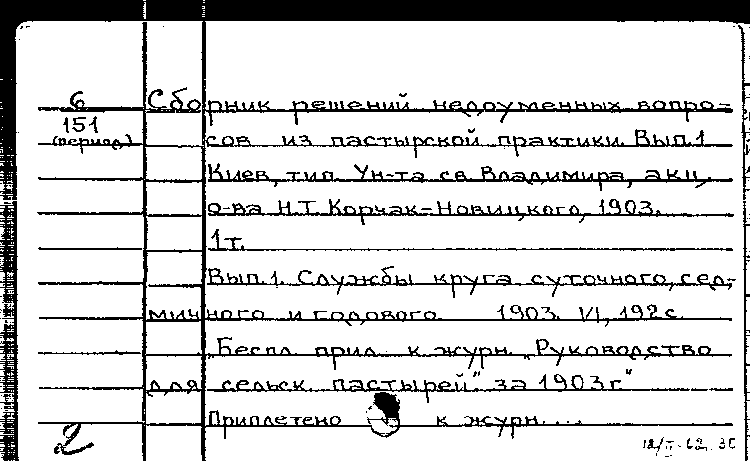 6
151
(период)
Сборник решений недоуменных вопро-
сов из пастырской практики. Вып.1
Киев, тип. Ун-та св. Владимира, акц.
о-ва Н.Т. Корчак-Новицкого, 1903.
1т.
Вып.1. Службы круга суточного, сед-
мичного и годового 1903. VI, 192с.
„Беспл. прил. к журн. „Руководство
для сельск. пастырей" за 1903г"
Приплетено к журн....
2